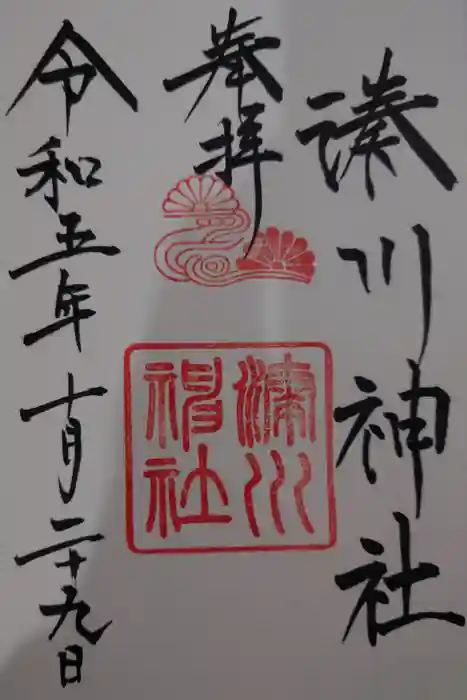 湊川神社
奉拝
湊川
神社
令和五年十月二十九日